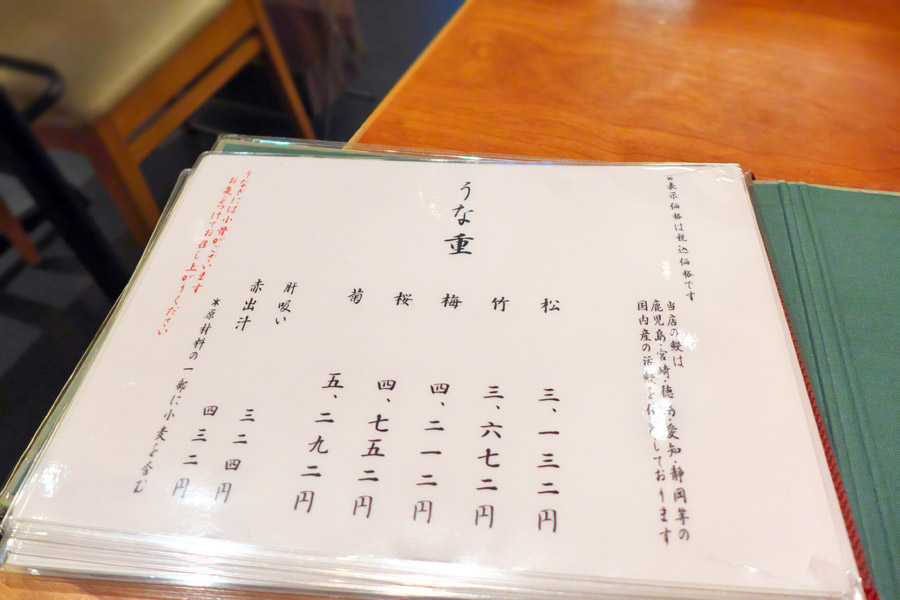 ※表示価格は税込価格です
当店の鰻は
鹿児島・宮崎・徳島・愛知・静岡等の
国内産の活鰻を使用しております
うな重
松 三、一三二円
竹 三、六七二円
梅 四、二一二円
桜 四、七五二円
菊 五、二九二円
肝吸い 三二四円
赤出汁 四三二円
＊原材料の一部に小麦を含む
うなぎには小骨がございます
お気をつけてお召し上がりください